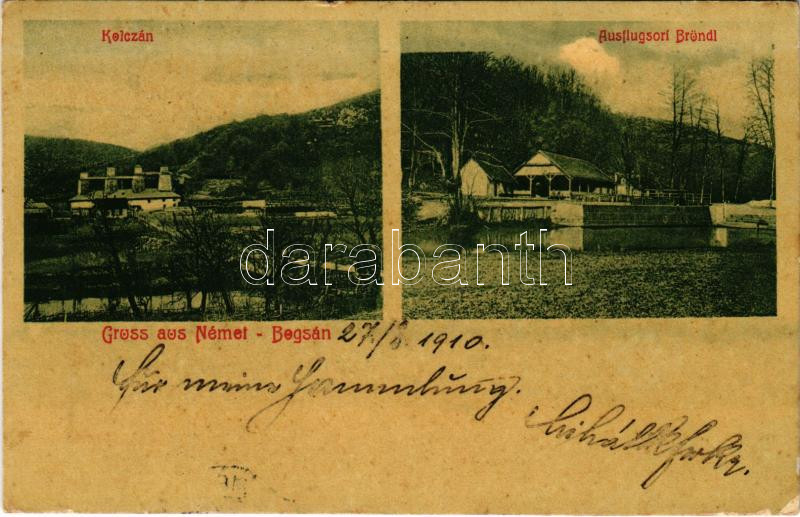 Kolczán
Ausflugsort Bründl
darabanth
Gruss aus Német - Bogsán
27/8 1910.
Für meine Sammlung.